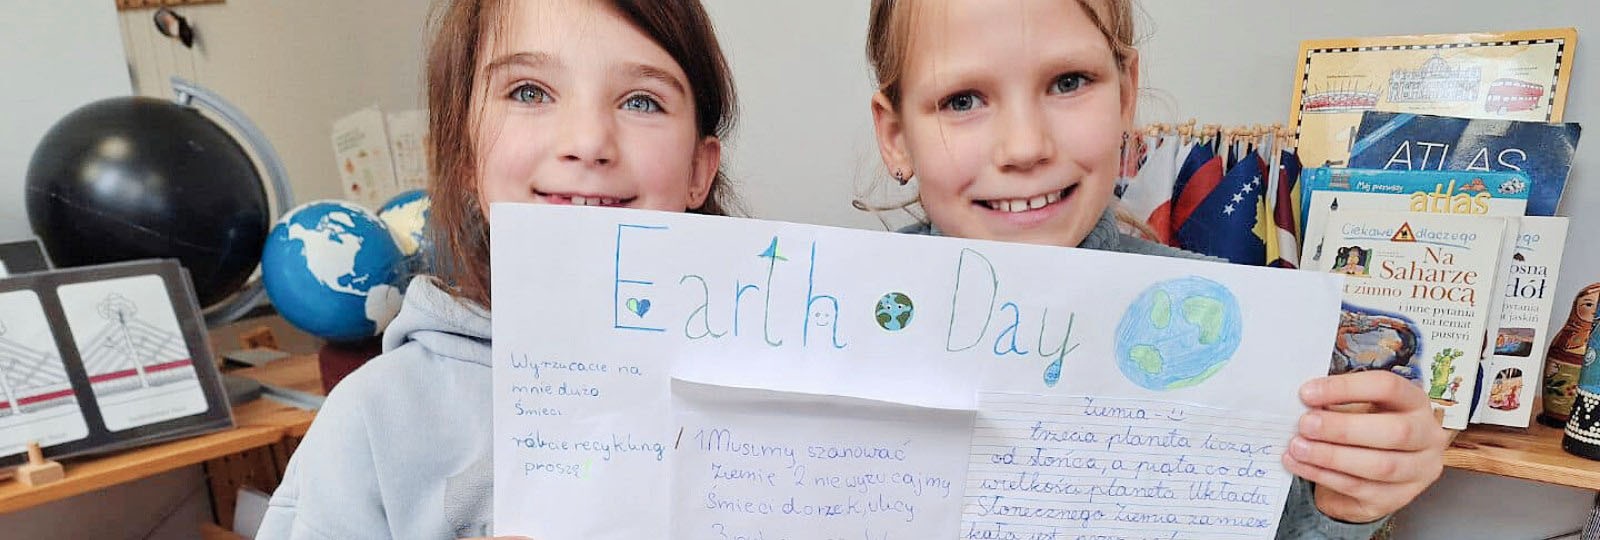 Earth Day
Wyrzucacie na
mnie dużo
śmieci
róbcie recykling
proszę!
1. Musimy szanować
Ziemię 2 nie wyżucajmy
śmieci do rzek, ulicy
Ziemia -
trzecia planeta licząc
od słońca, a piąta co do
wielkości planeta Układu
Słonecznego Ziemia zamiesz
kała jest przez
ATLAS
Mój pierwszy
atlas
Ciekawe dlaczego
Na
Saharze
jest zimno nocą
i inne pytania
na temat
pustyń